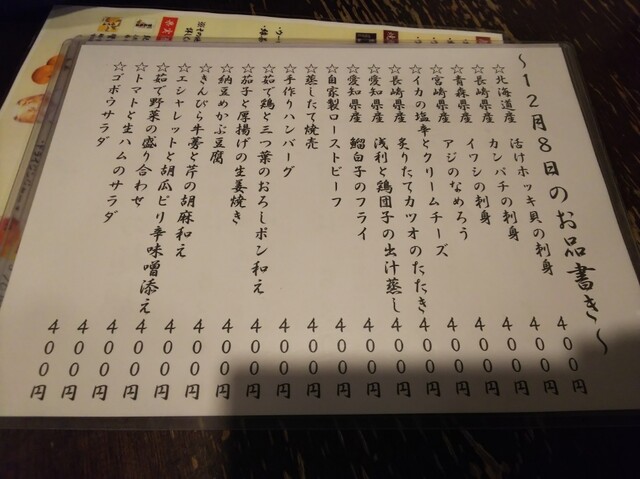 ～12月8日のお品書き～
☆北海道産 活けホッキ貝の刺身 400円
☆長崎県産 カンパチの刺身 400円
☆青森県産 イワシの刺身 400円
☆宮崎県産 アジのなめろう 400円
☆イカの塩辛とクリームチーズ 400円
☆長崎県産 炙りたてカツオのたたき 400円
☆愛知県産 浅利と鶏団子の出汁蒸し 400円
☆愛知県産 鰡白子のフライ 400円
☆自家製ローストビーフ 400円
☆蒸したて焼売 400円
☆手作りハンバーグ 400円
☆茹で鶏と三つ葉のおろしポン和え 400円
☆茄子と厚揚げの生姜焼き 400円
☆納豆めかぶ豆腐 400円
☆きんぴら牛蒡と芹の胡麻和え 400円
☆エシャレットと胡瓜ピリ辛味噌添え 400円
☆茹で野菜の盛り合わせ 400円
☆トマトと生ハムのサラダ 400円
☆ゴボウサラダ 400円